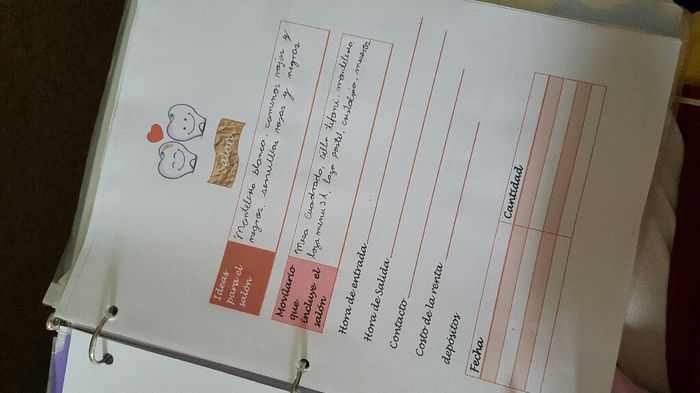 Salón
Ideas
para el
salón
Mantelería blanca, caminos rojos y
negros, servilletas rojas y negras
Movilario
que
incluye el
salón
Mesa Cuadrada, silla tifani, mantelería,
loza menu 3t, loza pastel, cristalería, meseros
Hora de entrada
Hora de Salida
Contacto
Costo de la renta
depósitos
Fecha
Cantidad